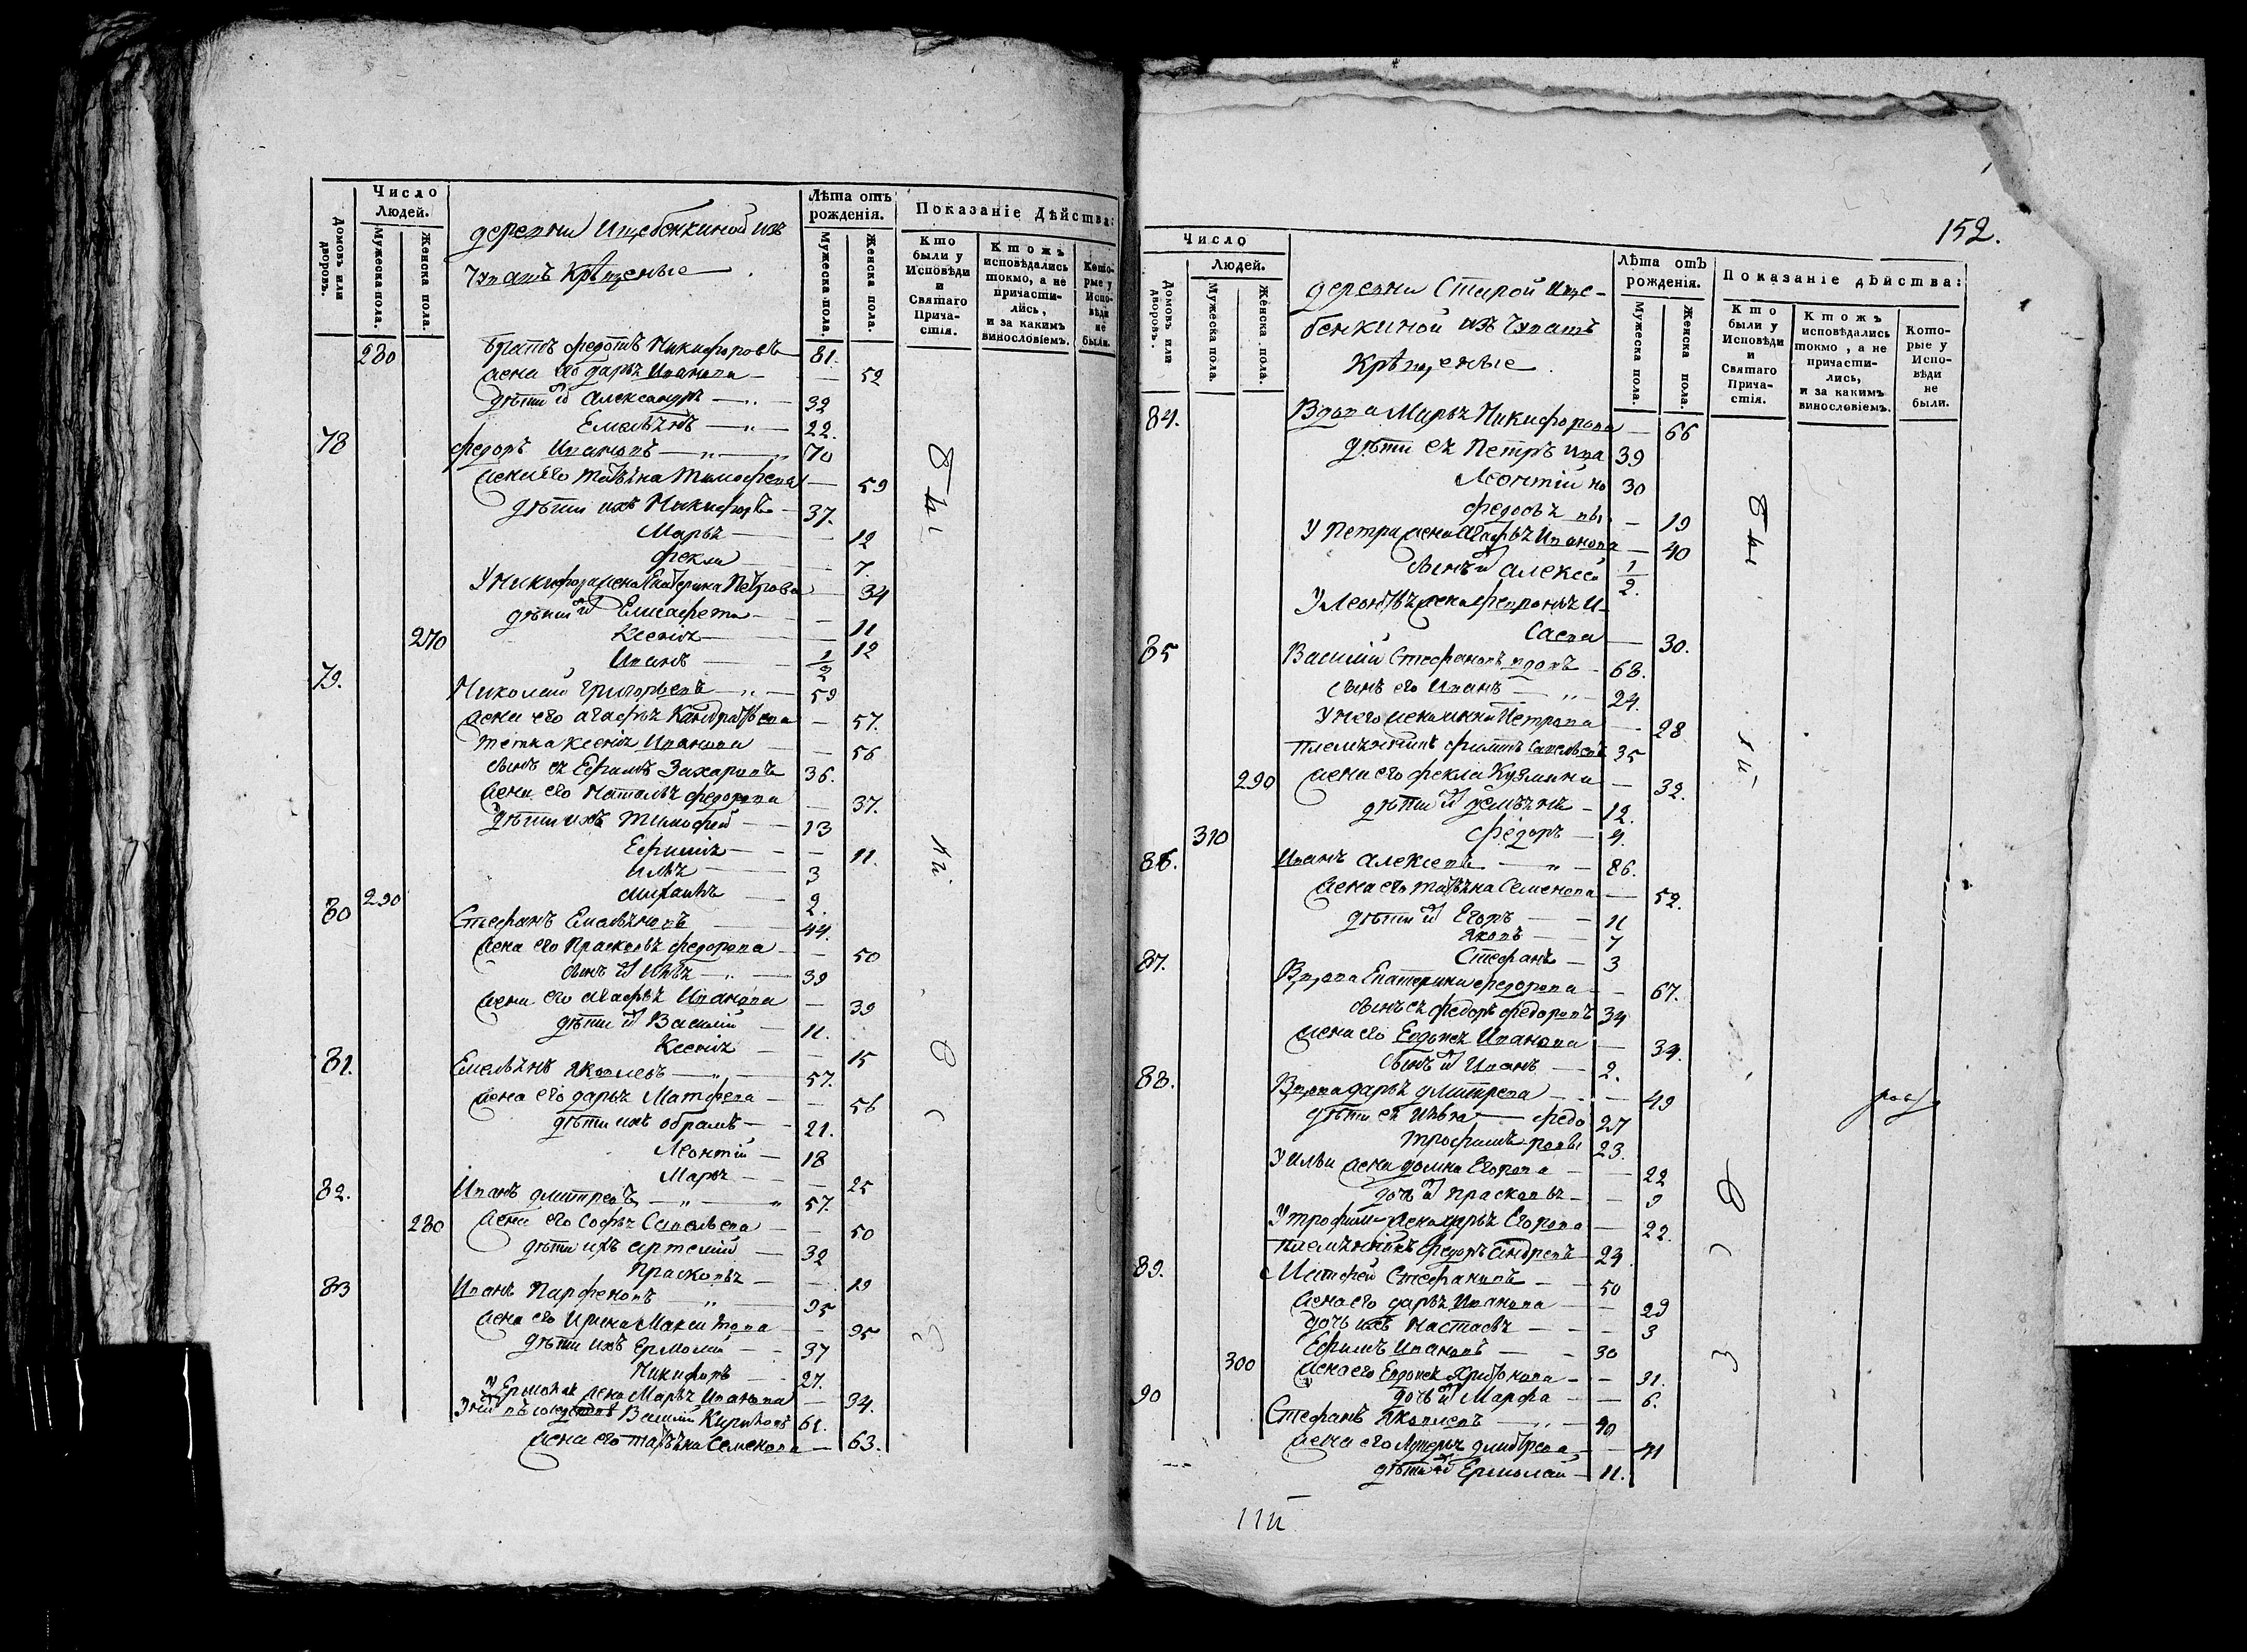 Число
Людей.
Домовъ или дворовъ.
Мужеска пола.
Женска пола.
деревни Ищебенкиной изъ
Чувашъ Крѣщеные
Лѣта отъ рожденія.
Мужеска пола.
Женска пола.
Показаніе Дѣйства:
Кто были у Исповѣди и Святаго Причастія.
Ктожъ исповѣдались токмо, а не причастились, и за какимъ винословіемъ.
Которые у Исповѣди не были.
280 братъ Федотъ Никифоровъ 81.
жена его дарья Иванова — 52
дѣти их Александръ — 32
Емельянъ — 22.
78 Федоръ Ивановъ — 70
жена его Татьяна Тимофеева — 59
дѣти ихъ Никифоръ — 37.
Марья — 12
Фекла 7.
У Никифора жена Екатерина Петрова 34
дѣти их Елисафета — 11
270 Ксенія — 12
Иванъ — 1/2
79. Николай Григорьевъ — 59
жена его агафья Кандратьева — 57.
тетка ксенія Иванова — 56
сынъ ея Ефимъ Захаровъ 36.
жена его Наталья Федорова — 37.
дѣти ихъ Тимофей — 13
Ефимія — 11.
Илья 3
290 Михаилъ — 2.
80 Стефанъ Емельяновъ 44.
жена его Прасковья Федорова — 50
сынъ их Илья — 39
жена его агафья Иванова — 39
дѣти их Василій — 11.
Ксенія — 15
81. Емельянъ Яковлевъ — 57.
жена его дарья Матфеева — 56
дѣти ихъ обрамъ — 21.
Леонтій — 18
Марья — 25
82. Иванъ дмитревъ — 57.
280 жена его Софья Савельева — 50
дѣти ихъ артемій — 32
Прасковья — 19
83 Иванъ Парфеновъ — 95
жена его Ирина Макситова — 95
дѣти ихъ Ермолай — 37
Никифоръ — 27.
У Ермолая жена Марья Иванова — 34.
У ней въ Василій Кириловъ 61.
жена его татьяна Семенова — 63.
152.
Число
Людей.
Домовъ или дворовъ.
Мужеска пола.
Женска пола.
деревни Старой Ище-
бенкиной изъ Чувашъ
Крѣщеные
Лѣта отъ рожденія.
Мужеска пола.
Женска пола.
Показаніе дѣйства:
Кто были у Исповѣди и Святаго Причастія.
Ктожъ исповѣдались токмо, а не причастились, и за какимъ винословіемъ.
Которые у Исповѣди не были.
84. Вдова Марья Никифорова — 66
дѣти ея Петръ Ива 39
Леонтій но 30
Федосья вы — 19
У Петра жена Агафья Иванова — 40
сынъ их алексей 1/2.
У Леонтья жена Февронья И-
саева — 30.
85 Василій Стефановъ вдовъ — 68.
сынъ его Иванъ — 24.
У него жена анна Петрова — 28
племянникъ филипъ Савельевъ 35
290 жена его фекла Кузмина — 32.
дѣти их демьянъ — 12.
310 Федоръ — 4.
86. Иванъ алексеевъ — 86.
жена его татьяна Семенова — 52.
дѣти их Егоръ — 11
Яковъ — 7
Стефанъ — 3
87. Вдова Екатерина Федорова — 67.
сынъ ея Федоръ Федоровъ 34
жена его Евдокея Иванова — 34.
сынъ их Иванъ — 2.
88. Вдова дарья дмитрева — 49
дѣти ея Илья — Федо 27
трофимъ ровы 23.
У ильи жена домна Егорова — 22
дочь их Прасковья — 9
У трофима жена дарья Егорова — 22.
племянникъ Федоръ андреевъ — 24
89. Матфей Стефановъ — 50
жена его дарья Иванова — 29
дочь ихъ Настасья — 3
Ефимъ Ивановъ — 30
300 жена его Евдокея Харитонова — 31.
дочь их Марфа — 6.
90 Стефанъ Яковлевъ — 40
жена его дмитрева — 41
дѣти их Ермолай — 11.